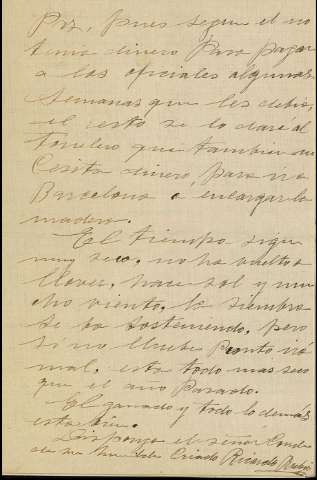 Paz, pues segun el no
tenia dinero para pagar
a los oficiales algunas
semanas que les debia,
el resto se lo daré al
tonelero que tambien ne
cesita dinero, para ir a
Barcelona a encargar la
madera.
El tiempo sigue
muy seco, no ha vuelto a
llover, hace sol y mu
cho viento, la siembra
se ba sosteniendo, pero
si no llueve pronto irá
mal, esta todo mas seco
que el año pasado.
El ganado y todo lo demás
esta bien.
Disponga el señor Conde
de su humilde Criado Ricardo Rubio